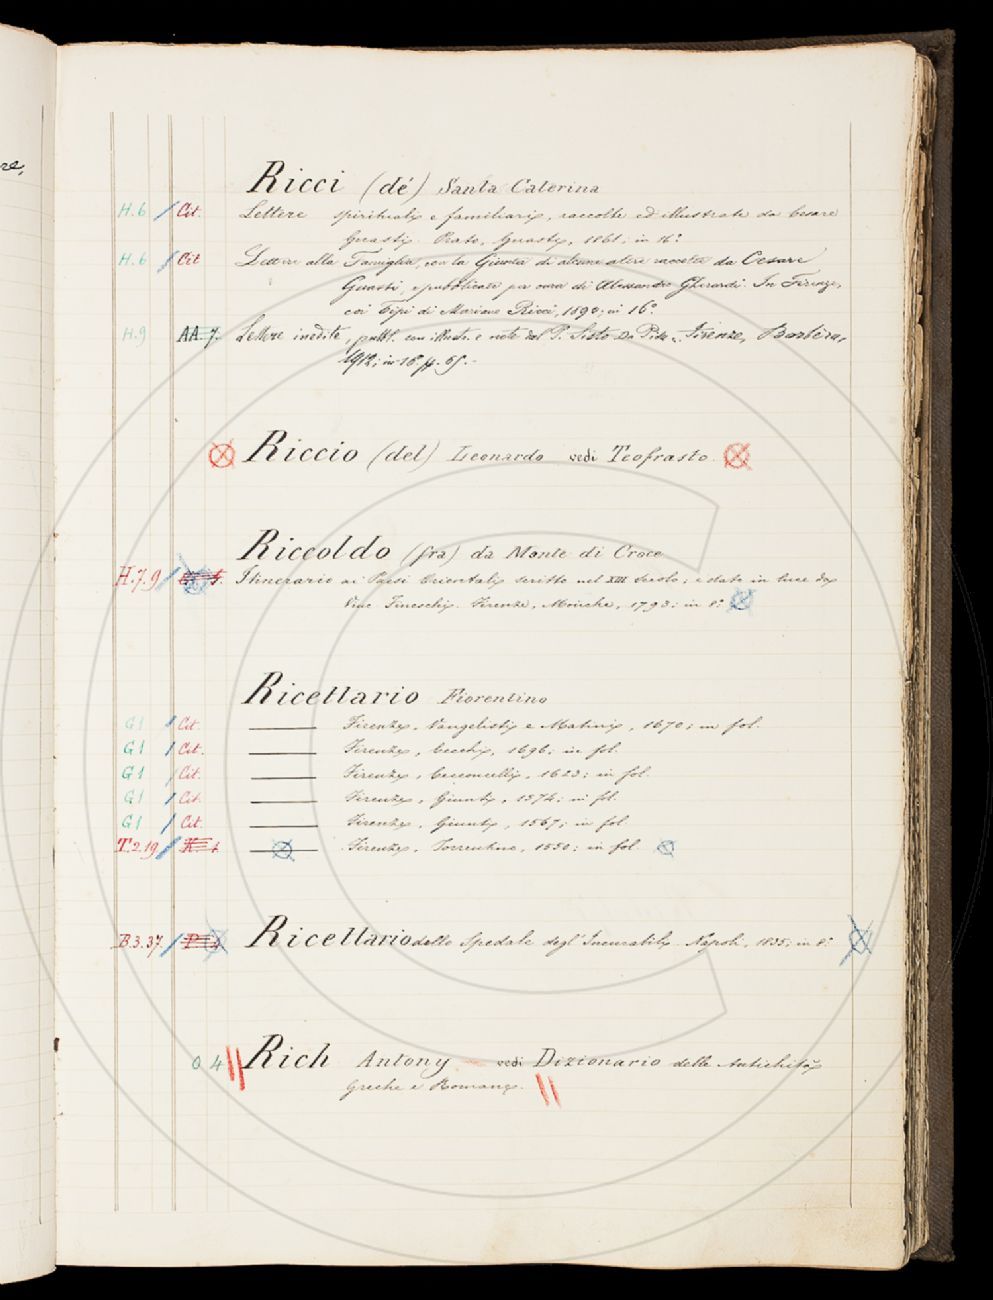 re,
Ricci (dé) Santa Caterina
H. 6 Cit. Lettere spirituali e familiari, raccolte ed illustrate da Cesare
Guasti. Prato, Guasti, 1861; in 16.°
H. 6 Cit Lettere alla Famiglia, con la Giunta di alcune altre raccolte da Cesare
Guasti, e pubblicate per cura di Alessandro Gherardi. In Firenze,
coi Tipi di Mariano Ricci, 1890; in 16.°
H. 9 AA. 7. Lettere inedite, pubbl. con illustr. e note dal P. Sisto da Pisa. Firenze, Barbèra,
1912; in-16. pp. 65. -
Riccio (del) Leonardo vedi Teofrasto
Riccoldo (fra) da Monte di Croce
H. 7. 9 Itinerario ai Paesi Orientali scritto nel XIII secolo, e dato in luce da
Vinc. Fineschi. Firenze, Moücke, 1793; in 8.°
Ricettario Fiorentino
G 1 Cit. Firenze, Vangelisti e Matini, 1670; in fol.
G 1 Cit. Firenze, Cecchi, 1696; in fol.
G 1 Cit. Firenze, Cecconcelli, 1623; in fol.
G 1 Cit. Firenze, Giunti, 1574; in fol.
G 1 Cit. Firenze, Giunti, 1567; in fol.
T. 2. 19 Firenze, Torrentino, 1550; in fol.
B. 3. 37. Ricettario dello Spedale degl' Incurabili. Napoli, 1835; in 8.°
O 4 Rich Antony vedi Dizionario delle Antichità
Greche e Romane.